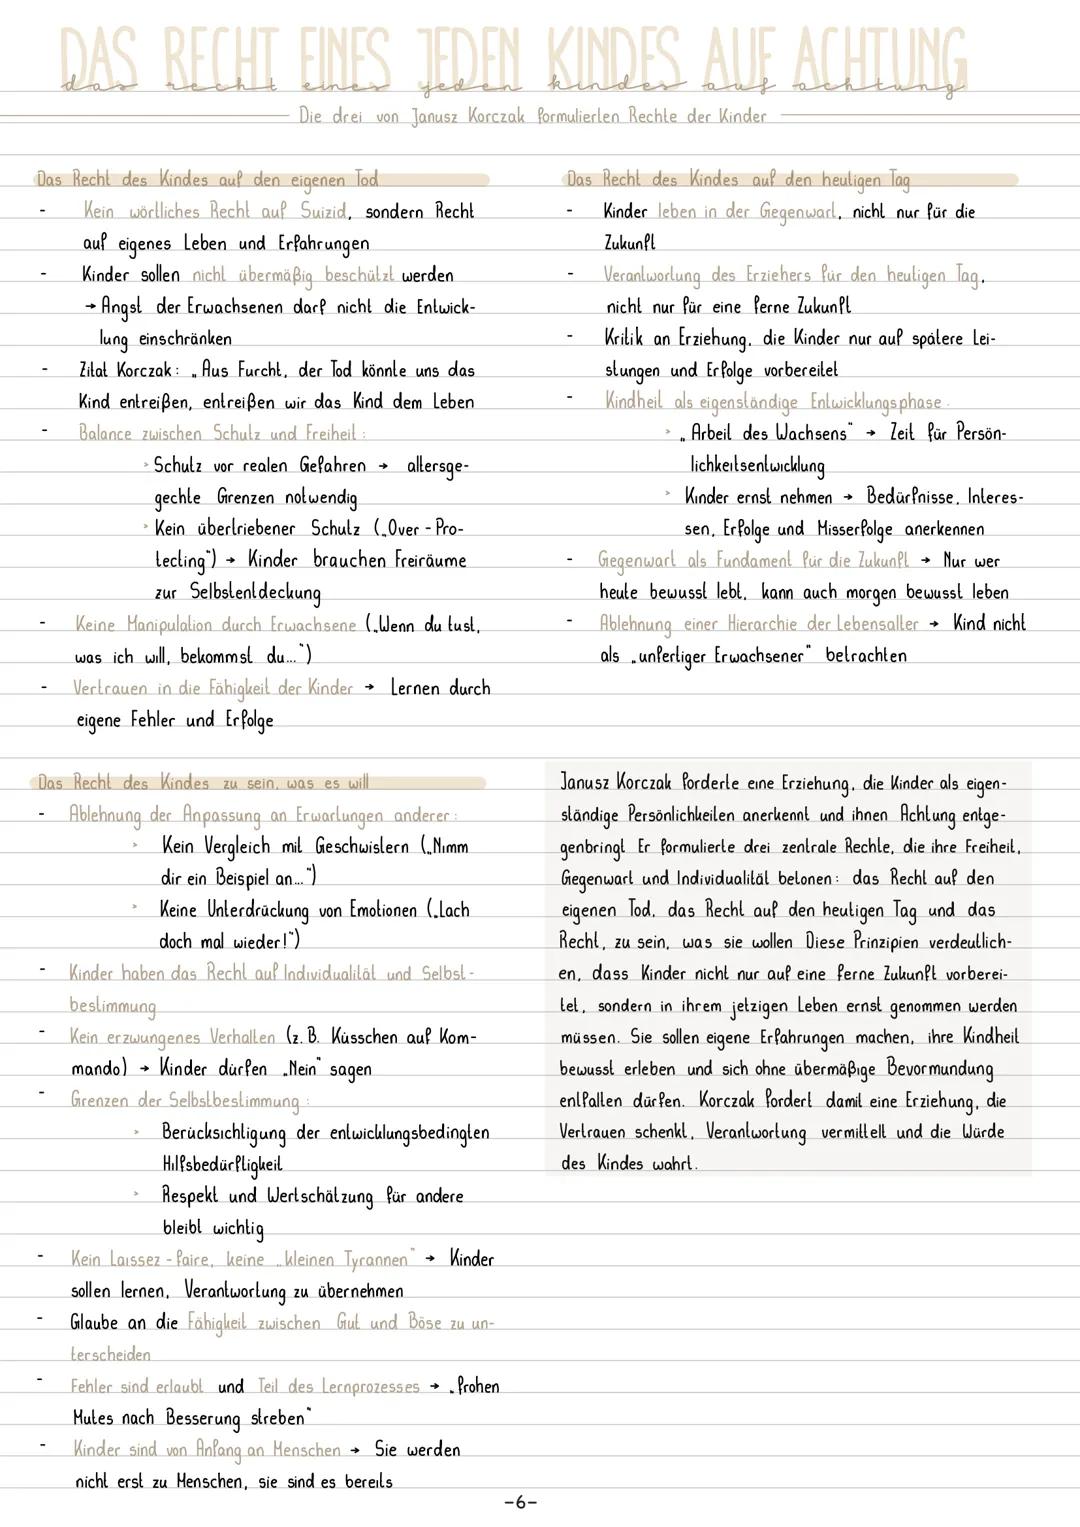 DAS RECHT EINES JEDEN KINDES AUF ACHTUNG
das recht eines jeden kindes auf achtung
Die drei von Janusz Korczak formulierten Rechte der Kinder
Das Recht des Kindes auf den eigenen Tod
- Kein wörtliches Recht auf Suizid, sondern Recht
auf eigenes Leben und Erfahrungen
- Kinder sollen nicht übermäßig beschützt werden
→ Angst der Erwachsenen darf nicht die Entwick-
lung einschränken
- Zitat Korczak: „Aus Furcht, der Tod könnte uns das
Kind entreißen, entreißen wir das Kind dem Leben
- Balance zwischen Schutz und Freiheit:
> Schutz vor realen Gefahren → allersge-
gechte Grenzen notwendig
> Kein übertriebener Schutz („Over-Pro-
tecting") → Kinder brauchen Freiräume
zur Selbstentdeckung
- Keine Manipulation durch Erwachsene („Wenn du tust,
was ich will, bekommst du...")
- Vertrauen in die Fähigkeit der Kinder → Lernen durch
eigene Fehler und Erfolge
Das Recht des Kindes auf den heutigen Tag
- Kinder leben in der Gegenwart, nicht nur für die
Zukunft
- Verantwortung des Erziehers für den heutigen Tag,
nicht nur für eine ferne Zukunft
- Kritik an Erziehung, die Kinder nur auf spätere Lei-
stungen und Erfolge vorbereitet
- Kindheit als eigenständige Entwicklungsphase:
> „Arbeit des Wachsens" → Zeit für Persön-
lichkeitsentwicklung
> Kinder ernst nehmen → Bedürfnisse, Interes-
sen, Erfolge und Misserfolge anerkennen
- Gegenwart als Fundament für die Zukunft → Nur wer
heute bewusst lebt, kann auch morgen bewusst leben
- Ablehnung einer Hierarchie der Lebensalter → Kind nicht
als „unfertiger Erwachsener" betrachten
Das Recht des Kindes zu sein, was es will
- Ablehnung der Anpassung an Erwartungen anderer:
> Kein Vergleich mit Geschwistern („Nimm
dir ein Beispiel an...")
> Keine Unterdrückung von Emotionen („Lach
doch mal wieder!")
- Kinder haben das Recht auf Individualität und Selbst-
bestimmung
- Kein erzwungenes Verhalten (z.B. Küsschen auf Kom-
mando) → Kinder dürfen „Nein" sagen
- Grenzen der Selbstbestimmung:
> Berücksichtigung der entwicklungsbedingten
Hilfsbedürftigkeit
> Respekt und Wertschätzung für andere
bleibt wichtig
- Kein Laissez-faire, keine „kleinen Tyrannen" → Kinder
sollen lernen, Verantwortung zu übernehmen
- Glaube an die Fähigkeit zwischen Gut und Böse zu un-
terscheiden
- Fehler sind erlaubt und Teil des Lernprozesses → „frohen
Mutes nach Besserung streben"
- Kinder sind von Anfang an Menschen → Sie werden
nicht erst zu Menschen, sie sind es bereits
Janusz Korczak forderte eine Erziehung, die Kinder als eigen-
ständige Persönlichkeiten anerkennt und ihnen Achtung entge-
genbringt Er formulierte drei zentrale Rechte, die ihre Freiheit,
Gegenwart und Individualität betonen: das Recht auf den
eigenen Tod, das Recht auf den heutigen Tag und das
Recht, zu sein, was sie wollen Diese Prinzipien verdeutlich-
en, dass Kinder nicht nur auf eine ferne Zukunft vorberei-
tet, sondern in ihrem jetzigen Leben ernst genommen werden
müssen. Sie sollen eigene Erfahrungen machen, ihre Kindheit
bewusst erleben und sich ohne übermäßige Bevormundung
entfalten dürfen. Korczak fordert damit eine Erziehung, die
Vertrauen schenkt, Verantwortung vermittelt und die Würde
des Kindes wahrt.
-6-